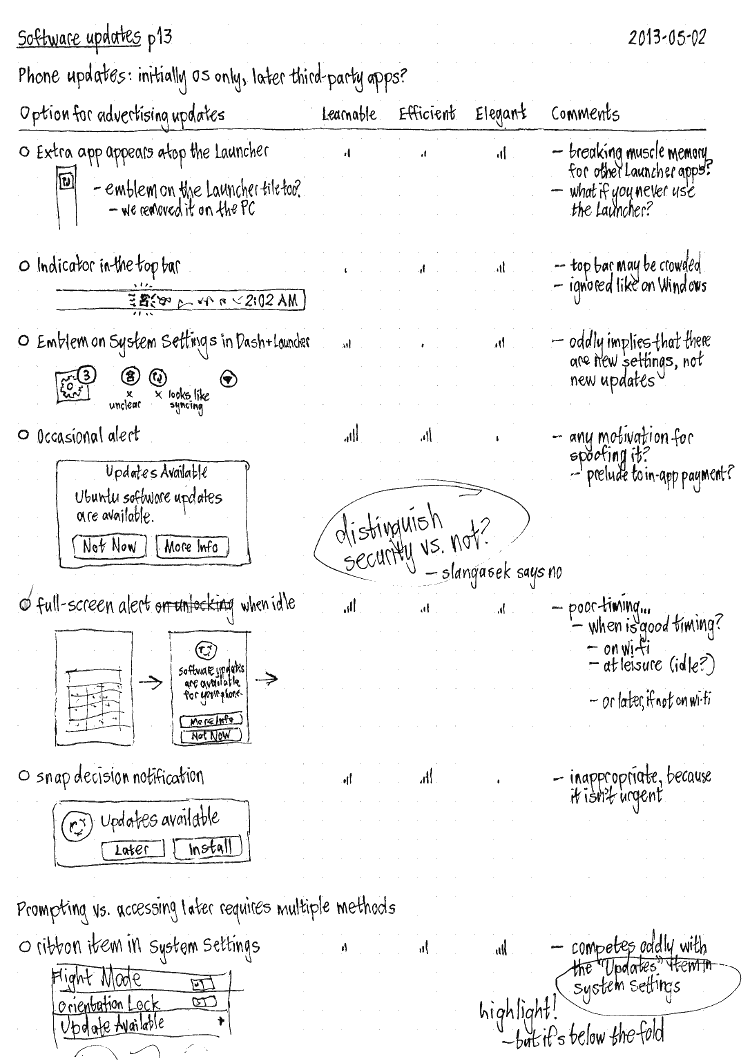 Software updates p13
2013-05-02
Phone updates: initially OS only, later third-party apps?
Option for advertising updates Learnable Efficient Elegant Comments
Extra app appears atop the Launcher
- emblem on the Launcher tile too?
- we removed it on the PC
- breaking muscle memory
for other Launcher apps?
- what if you never use
the Launcher?
Indicator in the top bar
2:02 AM
- top bar may be crowded
- ignored like on Windows
Emblem on System Settings in Dash+Launcher
3
x x looks like
unclear syncing
- oddly implies that there
are new settings, not
new updates
Occasional alert
Updates Available
Ubuntu software updates
are available.
Not Now More Info
- any motivation for
spoofing it?
- prelude to in-app payment?
distinguish
security vs. not?
- slangasek says no
full-screen alert on unlocking when idle
Software updates
are available
for your phone.
More Info
Not Now
- poor timing...
- when is good timing?
- on wi-fi
- at leisure (idle?)
- or later, if not on wi-fi
snap decision notification
Updates available
Later Install
- inappropriate, because
it isn't urgent
Prompting vs. accessing later requires multiple methods
ribbon item in System Settings
Flight Mode
Orientation Lock
Update Available
- competes oddly with
the "Updates" item in
System Settings
highlight!
- but it's below the fold